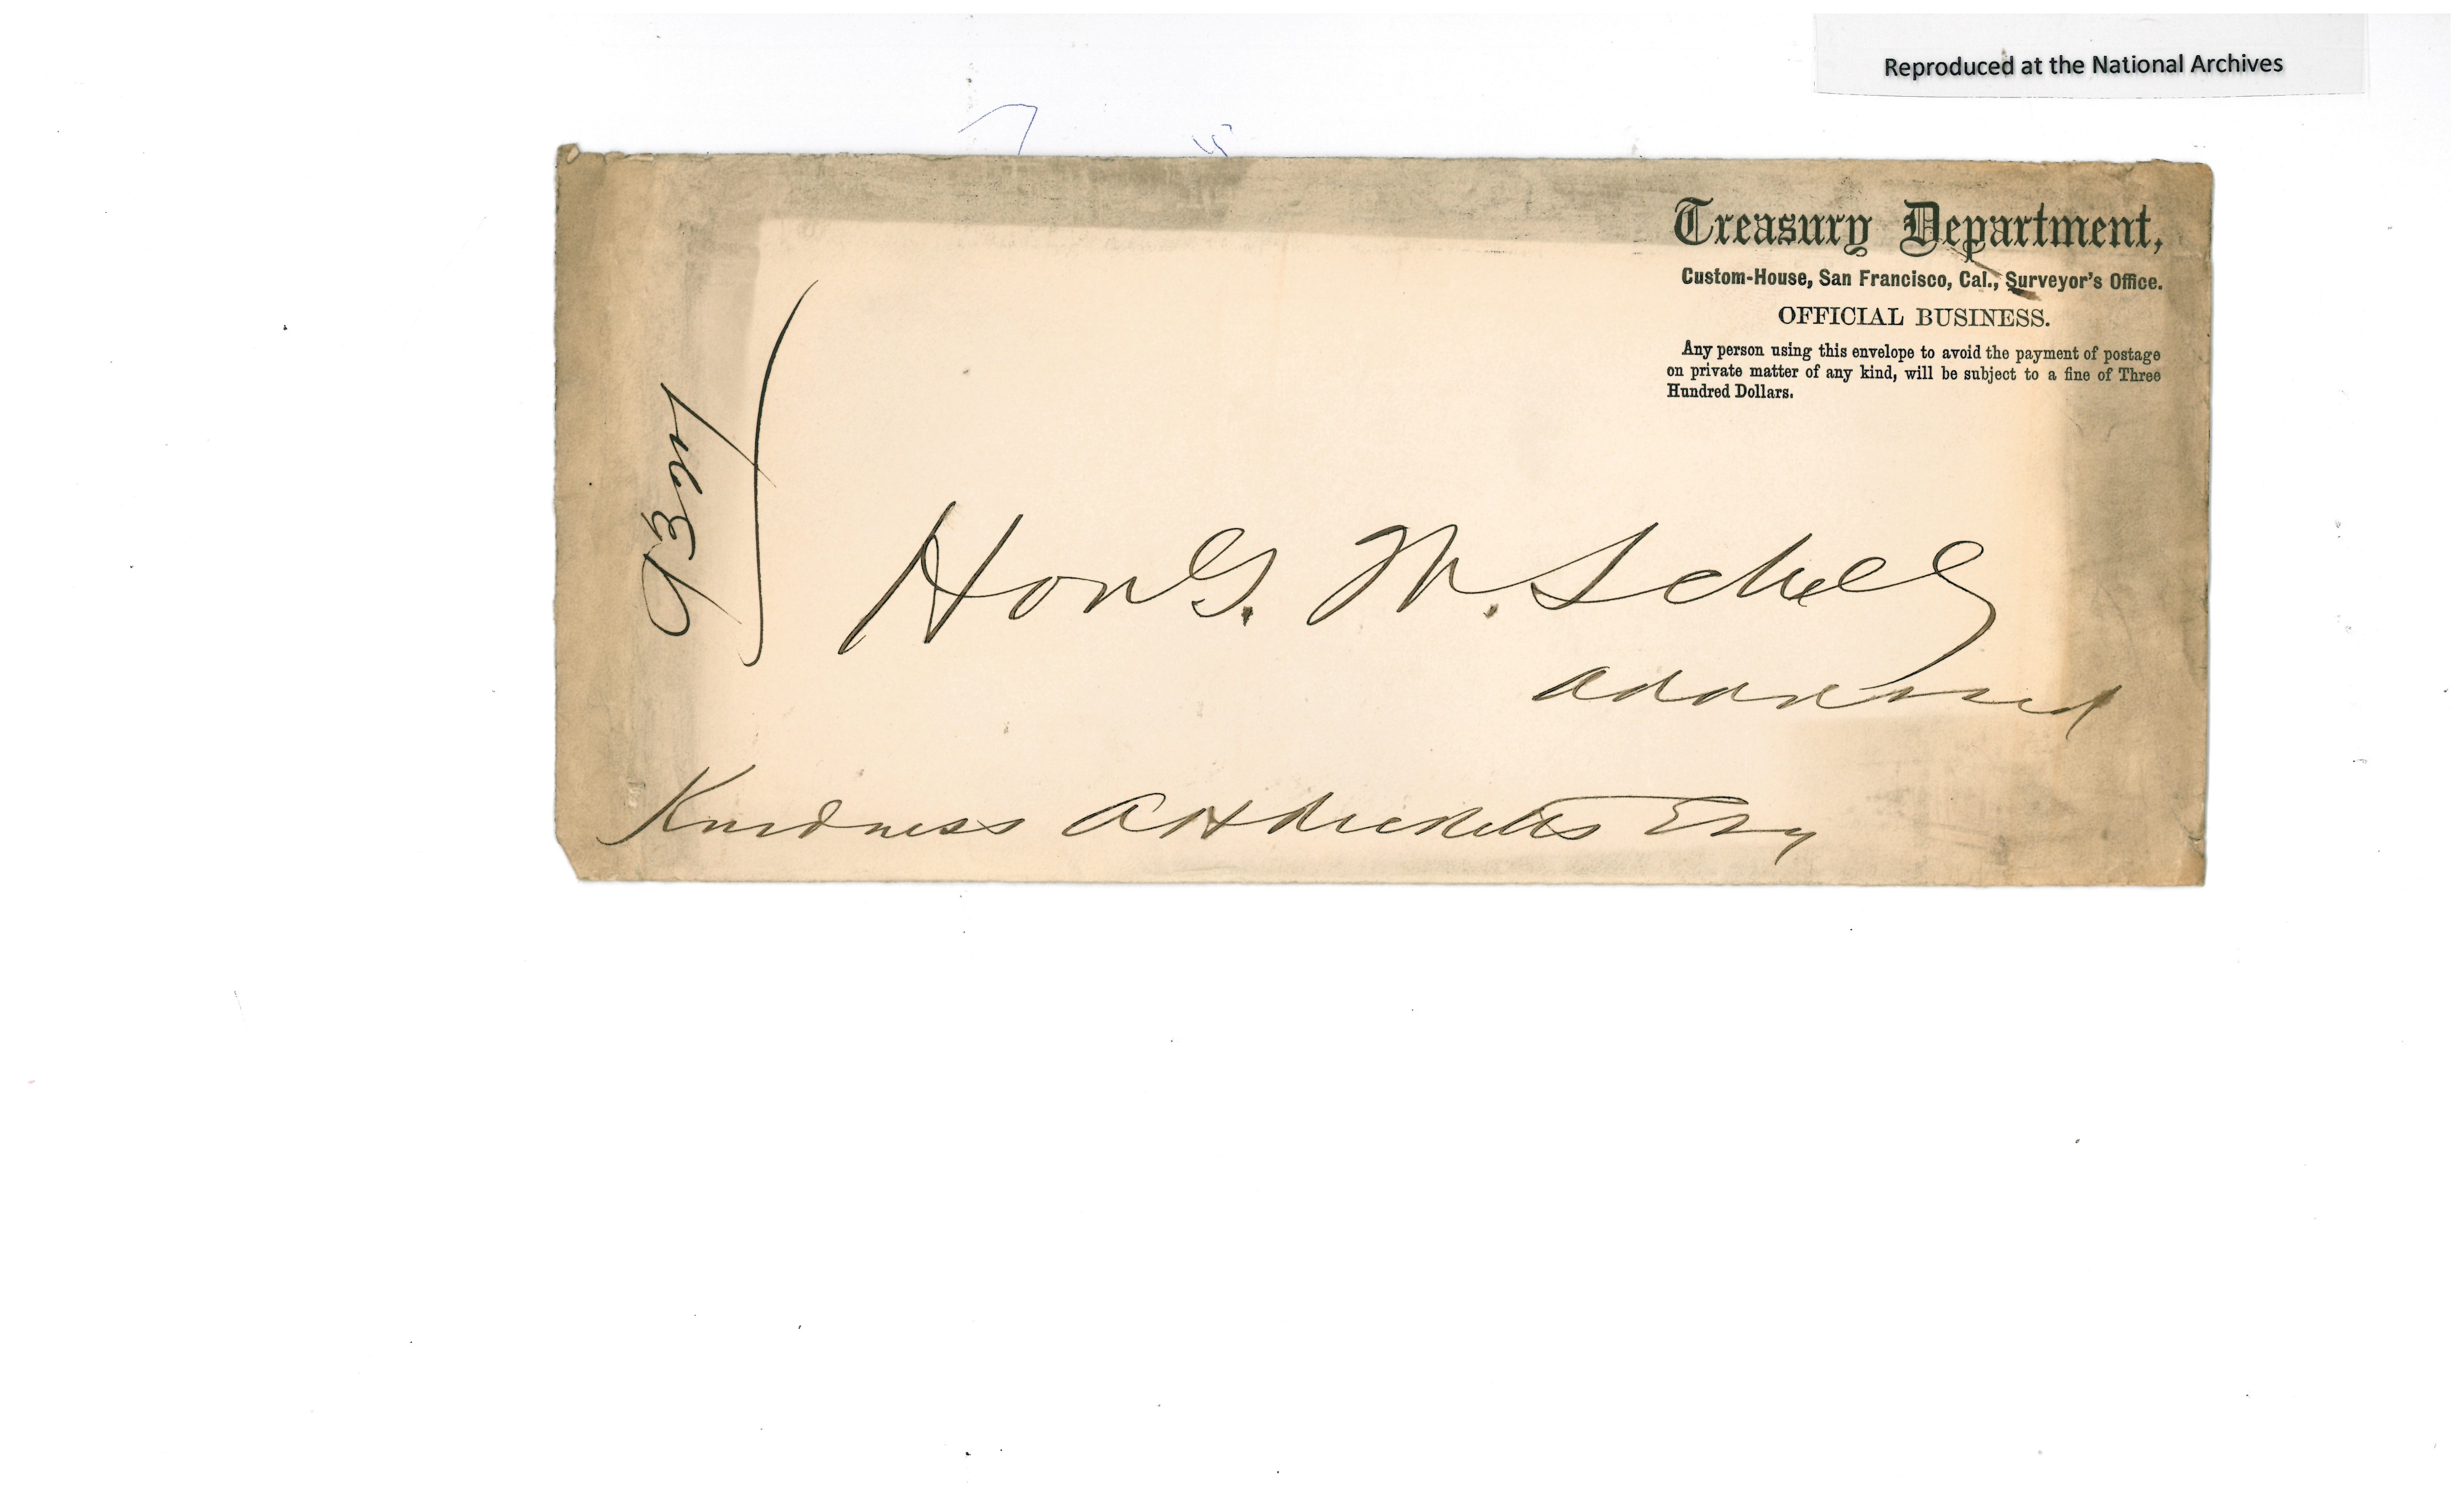 Reproduced at the National Archives
Treasury Department,
Custom-House, San Francisco, Cal., Surveyor's Office.
OFFICIAL BUSINESS.
Any person using this envelope to avoid the payment of postage
on private matter of any kind, will be subject to a fine of Three
Hundred Dollars.
Hon G. M. Schell
Addressed
Kindness A H Ricketts Esq